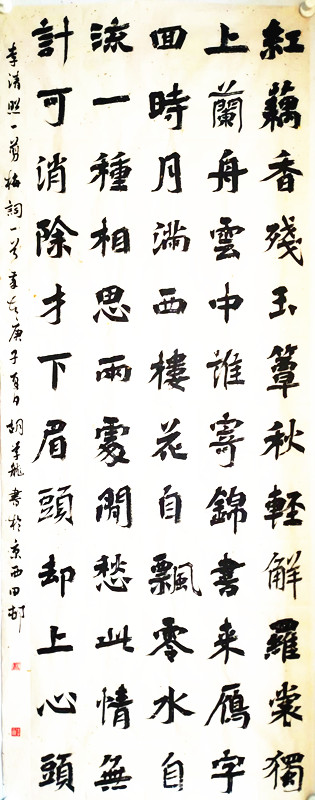 紅藕香殘玉簟秋輕解羅裳獨
上蘭舟雲中誰寄錦書来鴈字
回時月滿西樓花自飄零水自
流一種相思兩處閒愁此情無
計可消除才下眉頭却上心頭
李清照一剪梅詞一首 庚子夏月胡李龍書於京西田村